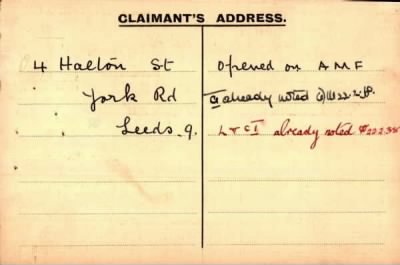 CLAIMANT'S ADDRESS.
4 Halton St
York Rd
Leeds. 9.
Opened on A M F
already noted 22.2.38.
L & C I already noted 22.2.38